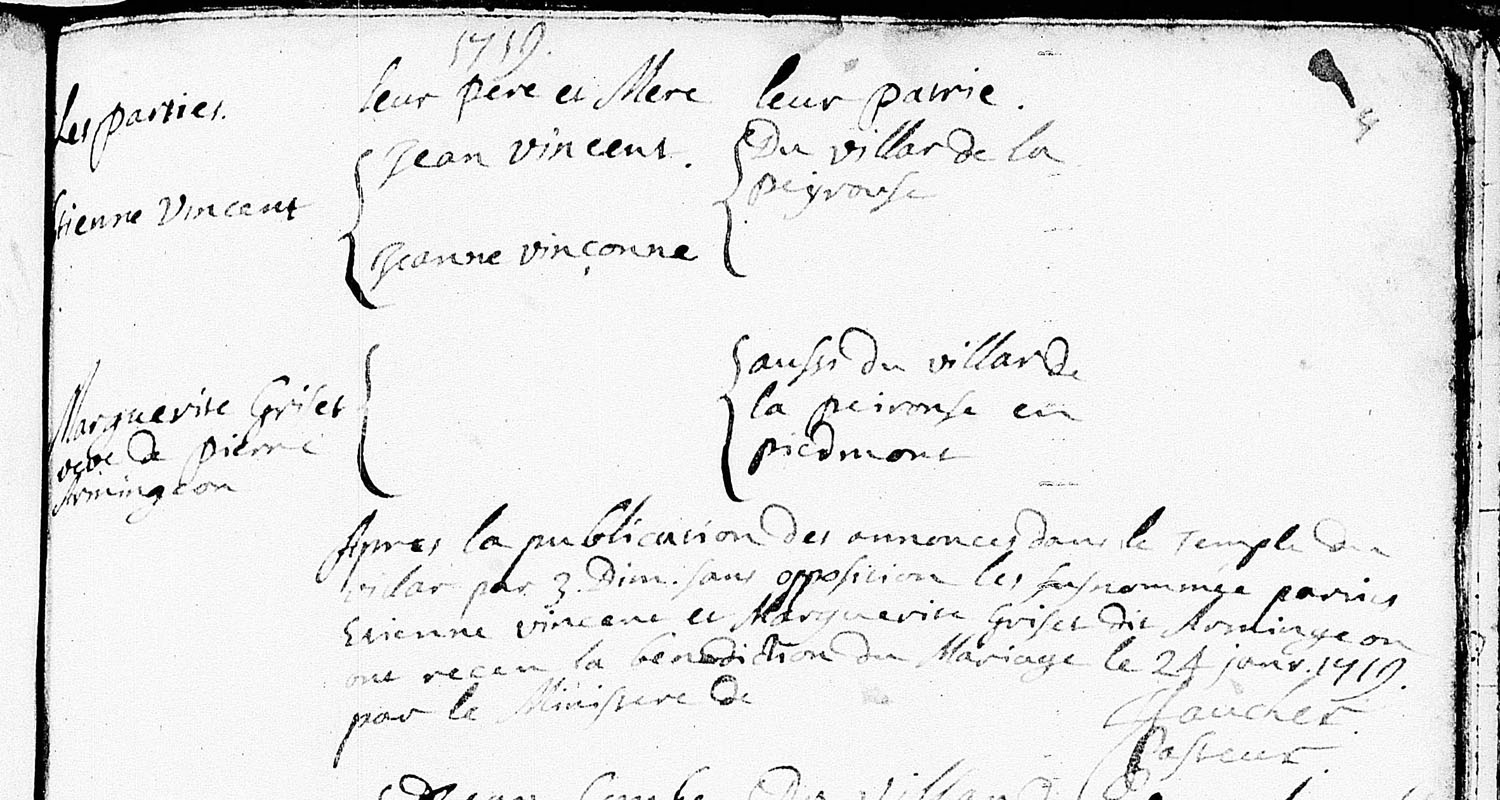 1719.
Les parties.
leur pere et Mere
leur patrie.
Etienne Vincent
Jean vincent.
Jeanne vinçonne
Du villar de la
peyrouse
Marguerite Griset
veve de pierre
Armingeon
aussi du villar de
la peirouse en
piedmont
Apres la publication des annonces dans le Temple du
villar par 3. Dim. sans opposition les susnommée parties
Etienne vincent et Marguerite Griset dit Armingeon
ont receu la benediction du Mariage le 24 janv. 1719.
par le Ministere de
Pasteur.
Jean Combe Du villar